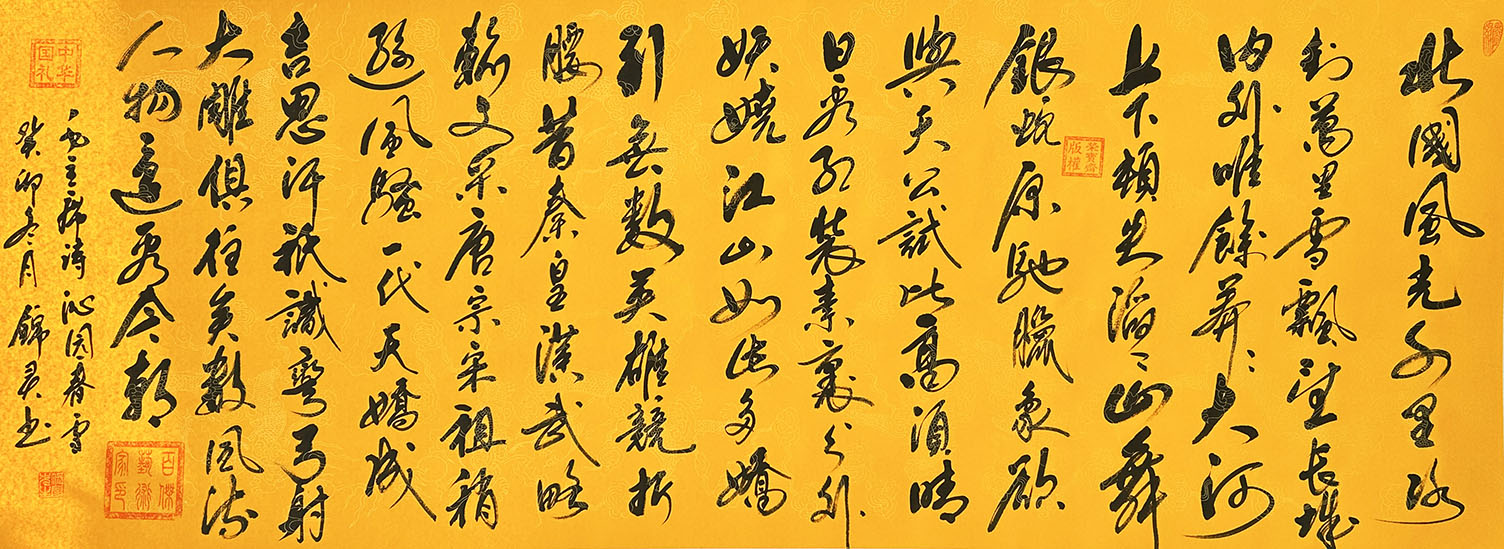 北國風光千里冰
封萬里雪飄望長城
内外唯餘莽〻大河
上下頓失滔〻山舞
銀蛇原馳臘象欲
與天公試比高須晴
日看紅裝素裹分外
妖嬈江山如此多嬌
引無數英雄競折
腰昔秦皇漢武略
輸文采唐宗宋祖稍
遜風騷一代天嬌成
吉思汗祇識彎弓射
大雕俱往矣數風流
人物還看今朝
毛主席詩沁园春雪
癸卯冬月錦书
榮寶齋
版權
中华
国礼
百傑
藝術
家印